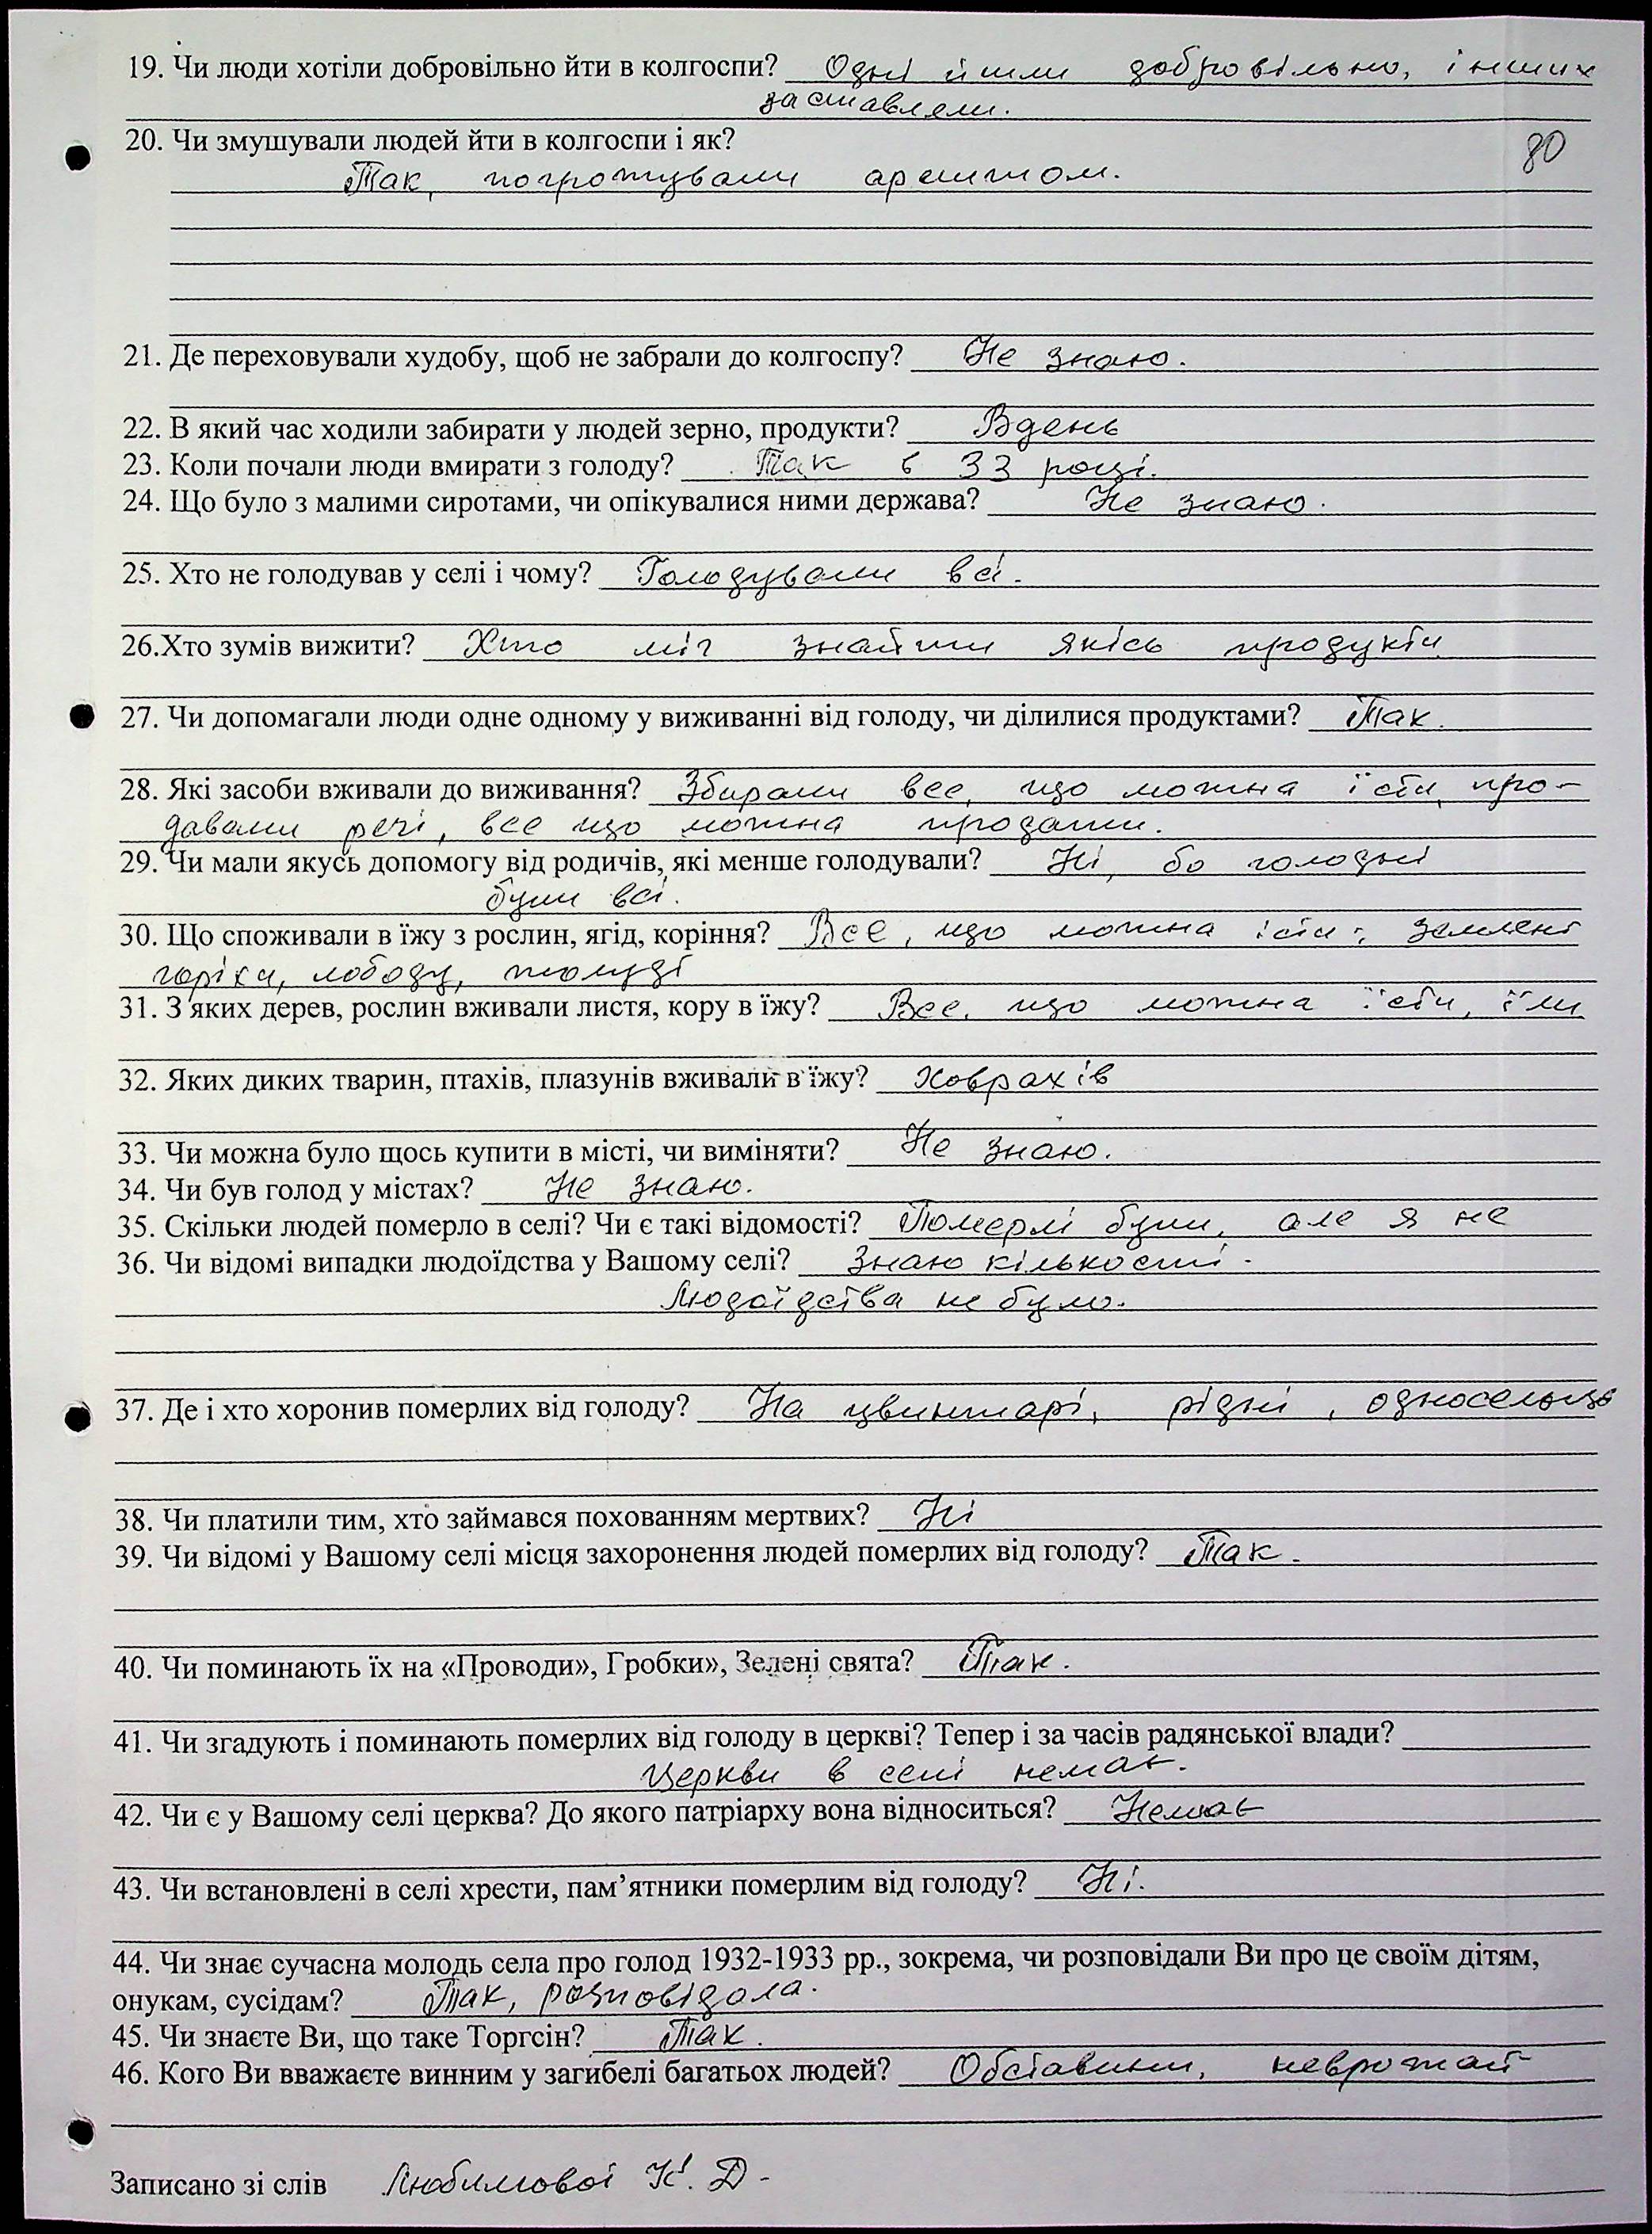 19. Чи люди хотіли добровільно йти в колгоспи? Одні йшли добровільно, інших
заставляли.
20. Чи змушували людей йти в колгоспи і як?
80
Так, погрожували арештом.
21. Де переховували худобу, щоб не забрали до колгоспу? Не знаю.
22. В який час ходили забирати у людей зерно, продукти? Вдень
23. Коли почали люди вмирати з голоду? Так в 33 році.
24. Що було з малими сиротами, чи опікувалися ними держава? Не знаю.
25. Хто не голодував у селі і чому? Голодували всі.
26.Хто зумів вижити? Хто міг знайти якісь продукти
27. Чи допомагали люди одне одному у виживанні від голоду, чи ділилися продуктами? Так.
28. Які засоби вживали до виживання? Збирали все, що можна їсти, про-
давали речі, все що можна продати.
29. Чи мали якусь допомогу від родичів, які менше голодували? Ні, бо голодні
були всі.
30. Що споживали в їжу з рослин, ягід, коріння? Все, що можна їсти: земляні
горіхи, лободу, жолуді
31. З яких дерев, рослин вживали листя, кору в їжу? Все, що можна їсти, їли
32. Яких диких тварин, птахів, плазунів вживали в їжу? Ховрахів
33. Чи можна було щось купити в місті, чи виміняти? Не знаю.
34. Чи був голод у містах? Не знаю.
35. Скільки людей померло в селі? Чи є такі відомості? Померлі були, але я не
36. Чи відомі випадки людоїдства у Вашому селі? знаю кількості.
Людоїдства не було.
37. Де і хто хоронив померлих від голоду? На цвинтарі, рідні, односельці
38. Чи платили тим, хто займався похованням мертвих? Ні
39. Чи відомі у Вашому селі місця захоронення людей померлих від голоду? Так.
40. Чи поминають їх на «Проводи», Гробки», Зелені свята? Так.
41. Чи згадують і поминають померлих від голоду в церкві? Тепер і за часів радянської влади?
Церкви в селі немає.
42. Чи є у Вашому селі церква? До якого патріарху вона відноситься? Немає
43. Чи встановлені в селі хрести, пам’ятники померлим від голоду? Ні.
44. Чи знає сучасна молодь села про голод 1932-1933 рр., зокрема, чи розповідали Ви про це своїм дітям,
онукам, сусідам? Так, розповідала.
45. Чи знаєте Ви, що таке Торгсін? Так.
46. Кого Ви вважаєте винним у загибелі багатьох людей? Обставини, неврожай
Записано зі слів Любимової К. Д.